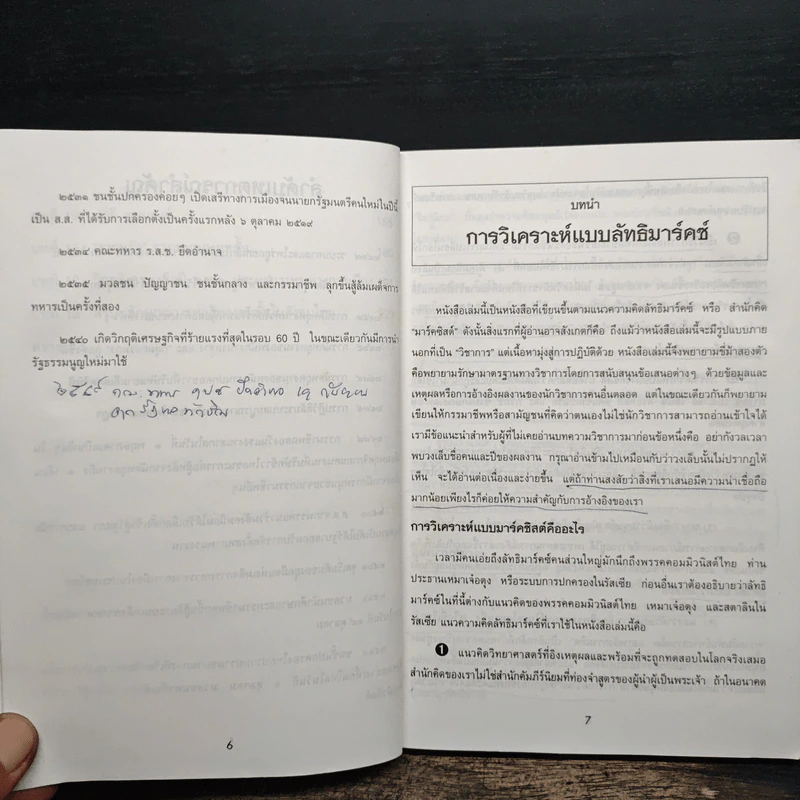 ๒๕๓๑ ชนชั้นปกครองค่อยๆ เปิดเสรีทางการเมืองจนนายกรัฐมนตรีคนใหม่ในปีนี้
เป็น ส.ส. ที่ได้รับการเลือกตั้งเป็นครั้งแรกหลัง ๖ ตุลาคม ๒๕๑๙
๒๕๓๔ คณะทหาร ร.ส.ช. ยึดอำนาจ
๒๕๓๕ มวลชน ปัญญาชน ชนชั้นกลาง และกรรมาชีพ ลุกขึ้นสู้ล้มเผด็จการ
ทหารเป็นครั้งที่สอง
๒๕๔๐ เกิดวิกฤติเศรษฐกิจที่ร้ายแรงที่สุดในรอบ 60 ปี ในขณะเดียวกันมีการนำ
รัฐธรรมนูญใหม่มาใช้
๒๕๔๙
6
บทนำ
การวิเคราะห์แบบลัทธิมาร์คซ์
หนังสือเล่มนี้เป็นหนังสือที่เขียนขึ้นตามแนวความคิดลัทธิมาร์คซ์ หรือ สำนักคิด
“มาร์คซิสต์” ดังนั้นสิ่งแรกที่ผู้อ่านอาจสังเกตก็คือ ถึงแม้ว่าหนังสือเล่มนี้จะมีรูปแบบภาย
นอกที่เป็น “วิชาการ” แต่เนื้อหามุ่งสู่การปฏิบัติด้วย หนังสือเล่มนี้จึงพยายามขี่ม้าสองตัว
คือพยายามรักษามาตรฐานทางวิชาการโดยการสนับสนุนข้อเสนอต่างๆ ด้วยข้อมูลและ
เหตุผลหรือการอ้างอิงผลงานของนักวิชาการคนอื่นตลอด แต่ในขณะเดียวกันก็พยายาม
เขียนให้กรรมาชีพหรือสามัญชนที่คิดว่าตนเองไม่ใช่นักวิชาการสามารถอ่านเข้าใจได้
เรามีข้อแนะนำสำหรับผู้ที่ไม่เคยอ่านบทความวิชาการมาก่อนข้อหนึ่งคือ อย่ากังวลเวลา
พบวงเล็บชื่อคนและปีของผลงาน กรุณาอ่านข้ามไปเหมือนกับว่าวงเล็บนั้นไม่ปรากฏให้
เห็น จะได้อ่านต่อเนื่องและง่ายขึ้น แต่ถ้าท่านสงสัยว่าสิ่งที่เราเสนอมีความน่าเชื่อถือ
มากน้อยเพียงไรก็ค่อยให้ความสำคัญกับการอ้างอิงของเรา
การวิเคราะห์แบบมาร์คซิสต์คืออะไร
เวลามีคนเอ่ยถึงลัทธิมาร์คซ์คนส่วนใหญ่มักนึกถึงพรรคคอมมิวนิสต์ไทย ท่าน
ประธานเหมาเจ๋อตุง หรือระบบการปกครองในรัสเซีย ก่อนอื่นเราต้องอธิบายว่าลัทธิ
มาร์คซ์ในที่นี้ต่างกับแนวคิดของพรรคคอมมิวนิสต์ไทย เหมาเจ๋อตุง และสตาลินใน
รัสเซีย แนวความคิดลัทธิมาร์คซ์ที่เราใช้ในหนังสือเล่มนี้คือ
❶ แนวคิดวิทยาศาสตร์ที่อิงเหตุผลและพร้อมที่จะถูกทดสอบในโลกจริงเสมอ
สำนักคิดของเราไม่ใช่สำนักคัมภีร์นิยมที่ท่องจำสูตรของผู้นำผู้เป็นพระเจ้า ถ้าในอนาคต
7